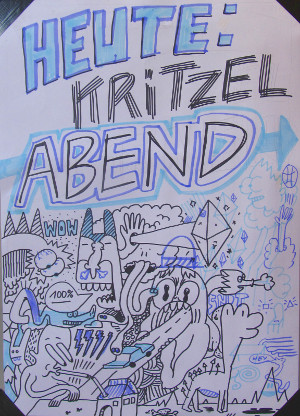 HEUTE:
KRITZEL
ABEND
WOW
100%